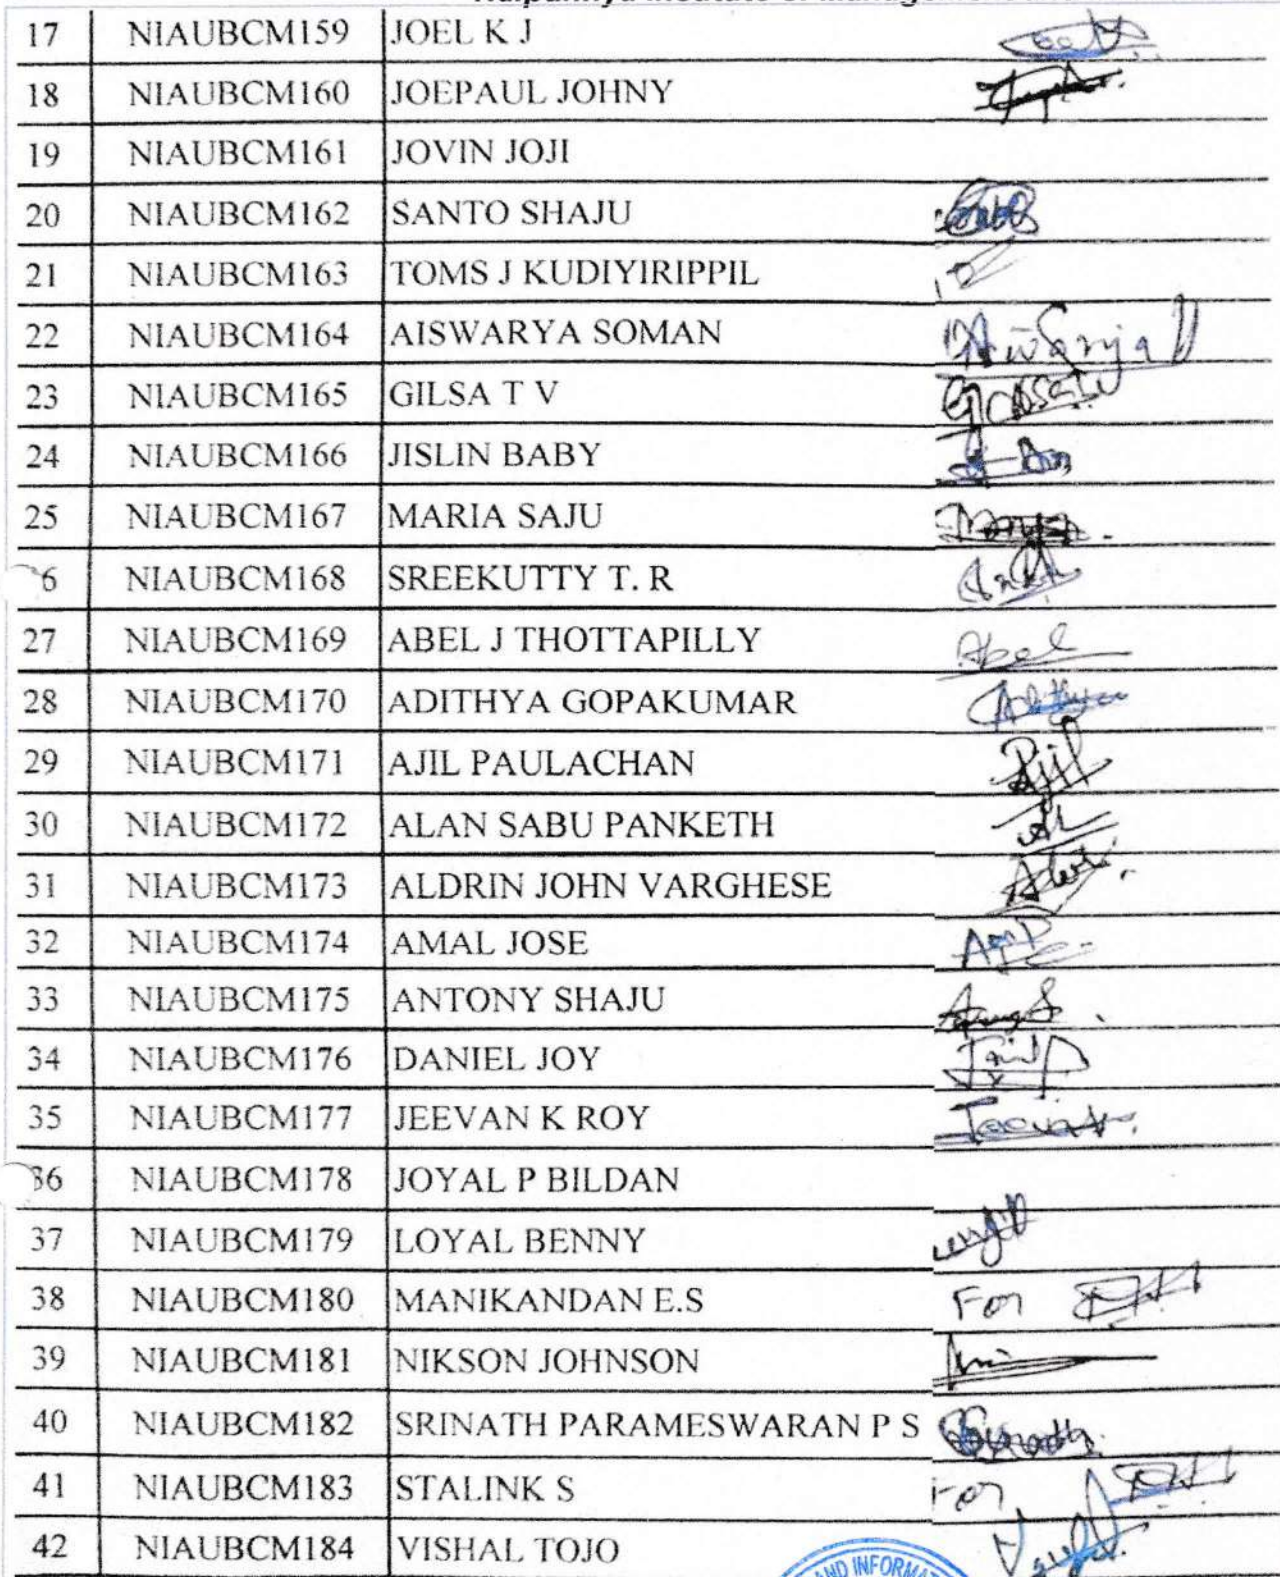 17 NIAUBCM159 JOEL K J
18 NIAUBCM160 JOEPAUL JOHNY
19 NIAUBCM161 JOVIN JOJI
20 NIAUBCM162 SANTO SHAJU
21 NIAUBCM163 TOMS J KUDIYIRIPPIL
22 NIAUBCM164 AISWARYA SOMAN
23 NIAUBCM165 GILSA T V
24 NIAUBCM166 JISLIN BABY
25 NIAUBCM167 MARIA SAJU
6 NIAUBCM168 SREEKUTTY T. R
27 NIAUBCM169 ABEL J THOTTAPILLY Abel
28 NIAUBCM170 ADITHYA GOPAKUMAR Adithya
29 NIAUBCM171 AJIL PAULACHAN Ajil
30 NIAUBCM172 ALAN SABU PANKETH
31 NIAUBCM173 ALDRIN JOHN VARGHESE
32 NIAUBCM174 AMAL JOSE
33 NIAUBCM175 ANTONY SHAJU
34 NIAUBCM176 DANIEL JOY
35 NIAUBCM177 JEEVAN K ROY Jeevan
36 NIAUBCM178 JOYAL P BILDAN
37 NIAUBCM179 LOYAL BENNY
38 NIAUBCM180 MANIKANDAN E.S For
39 NIAUBCM181 NIKSON JOHNSON
40 NIAUBCM182 SRINATH PARAMESWARAN P S
41 NIAUBCM183 STALINK S For
42 NIAUBCM184 VISHAL TOJO
AND INFORMAT